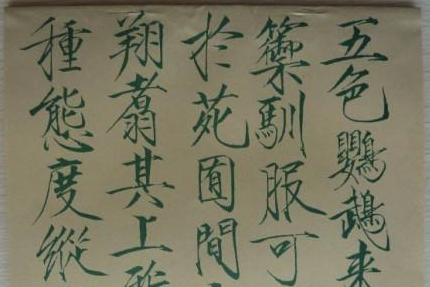 五色鸚鵡来
籞馴服可
扵苑囿間
翔翥其上
種態度縱